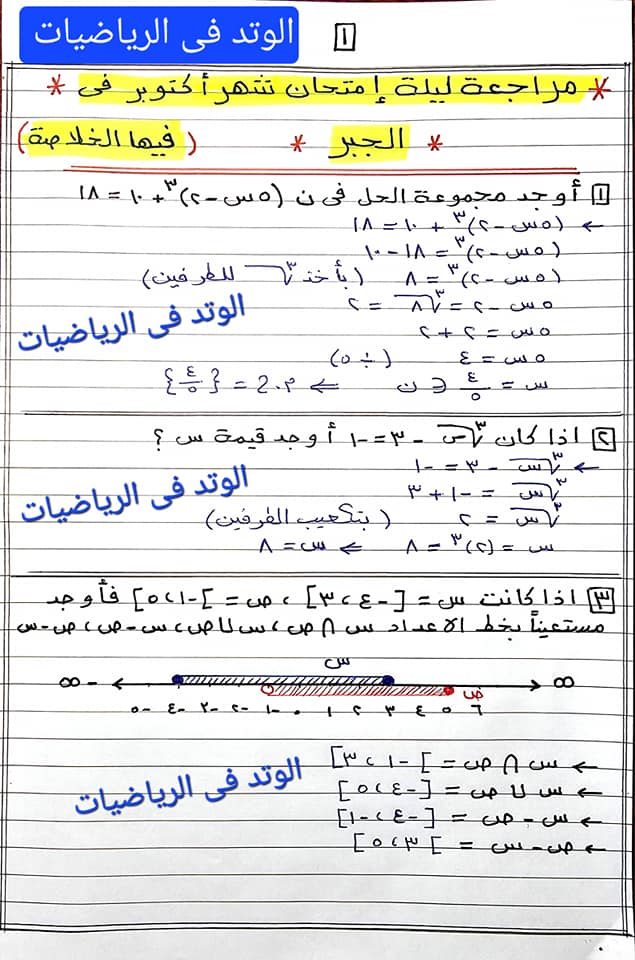 الوتد فى الرياضيات
١
* مراجعة ليلة إمتحان شهر أكتوبر فى *
* الجبر * (فيها الخلاصة)
١ أوجد مجموعة الحل فى ن (٥س-٢)³ + ١٠ = ١٨
← (٥س-٢)³ + ١٠ = ١٨
(٥س-٢)³ = ١٨-١٠
(٥س-٢)³ = ٨ (بأخذ ∛ للطرفين)
٥س-٢ = ∛٨ = ٢
٥س = ٢+٢
٥س = ٤ (÷٥)
س = ٤/٥ ∈ ن ← م.ح = {٤/٥}
الوتد فى الرياضيات
٢ اذا كان ∛س - ٣ = -١ أوجد قيمة س ؟
← ∛س - ٣ = -١
∛س = -١+٣
∛س = ٢ (بتكعيب الطرفين)
س = (٢)³ = ٨ ← س = ٨
الوتد فى الرياضيات
٣ اذا كانت س = [-٤، ٣]، ص = ]-١، ٥] فأوجد
مستعيناً بخط الاعداد س ∩ ص، س ∪ ص، س-ص، ص-س
س
-∞ ∞
ص
-٥ -٤ -٣ -٢ -١ ٠ ١ ٢ ٣ ٤ ٥ ٦
← س ∩ ص = ]-١، ٣]
← س ∪ ص = [-٤، ٥]
← س - ص = [-٤، -١]
← ص - س = ]٣، ٥]
الوتد فى الرياضيات